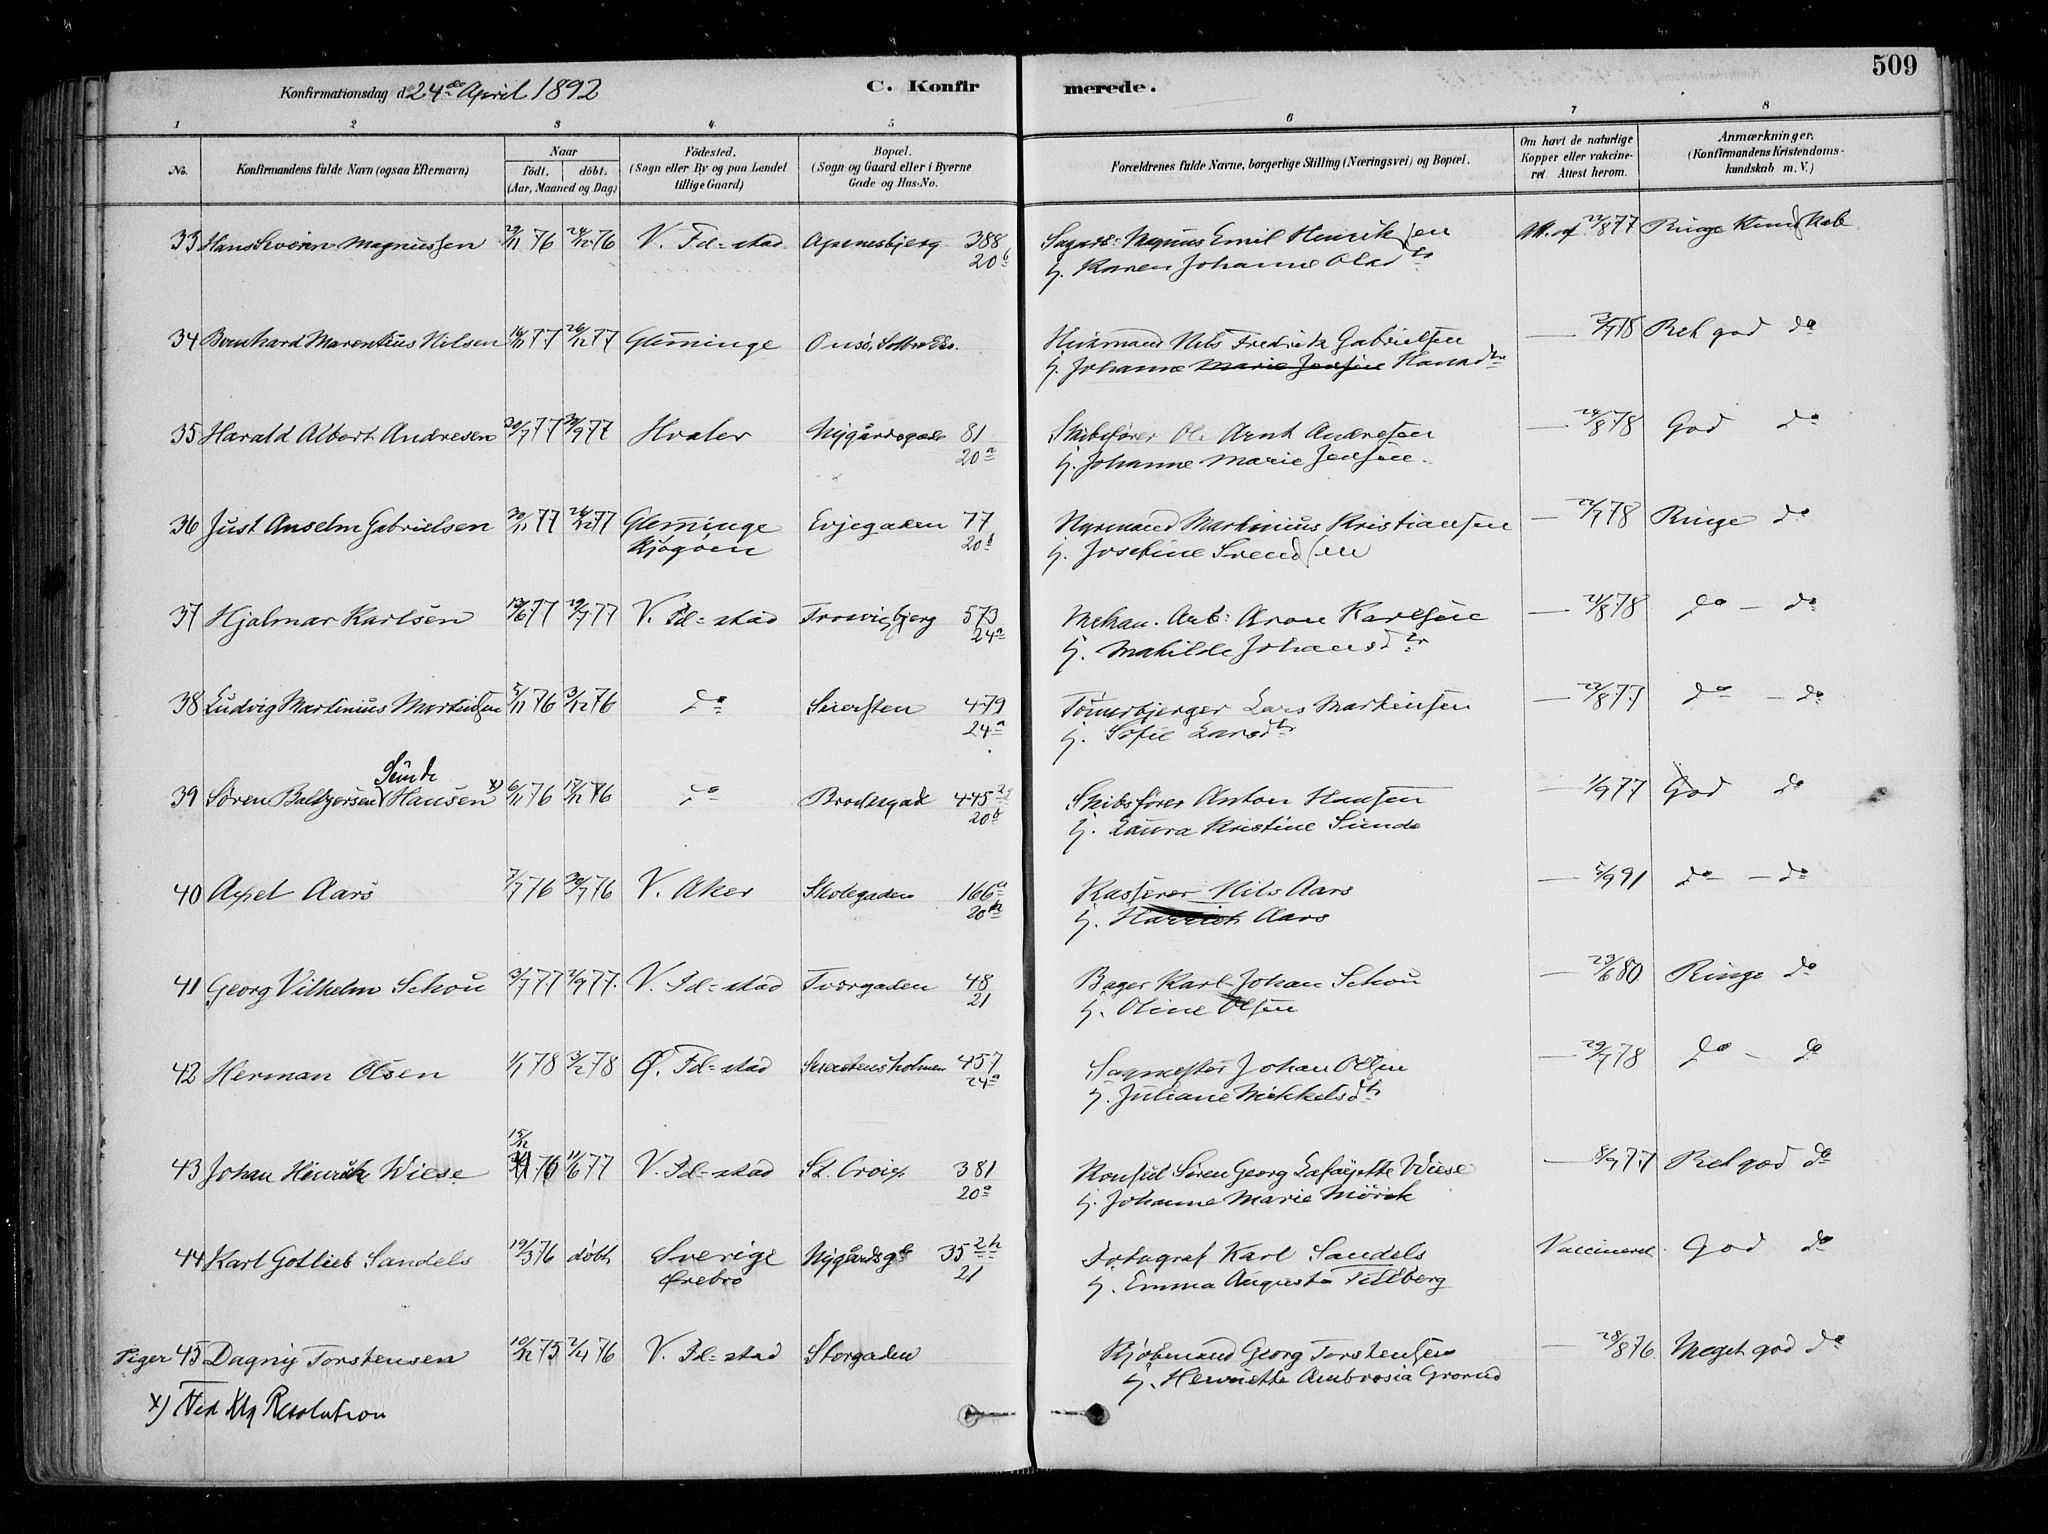 509
Konfirmationsdag d. 24de April 1892 C. Konfirmerede.
1 2 3 4 5 6 7 8
No. Konfirmandens fulde Navn (ogsaa Efternavn) Naar födt. döbt. (Aar, Maaned og Dag) Födested. (Sogn eller By og paa Landet tillige Gaard) Bopæl. (Sogn og Gaard eller i Byerne Gade og Hus-No. Forældrenes fulde Navne, borgerlige Stilling (Næringsvei) og Bopæl. Om havt de naturlige Kopper eller vakcineret. Attest herom. Anmærkninger. (Konfirmandens Kristendomskundskab m. V.)
33 Hans Severin Magnussen 29/11 76 24/12 76 V. Fd=stad Apenesbjerg 388 Sagarb. Magnus Emil Henriksen Att. af 22/8 77 Ringe Kundskab
20b Hj. Karen Johanne Olsdtr
34 Bernhard Marentius Nilsen 16/11 77 26/12 77 Glemminge Onsö, Huusmand Nils Fredrik Gabrielsen — 3/7 78 Ret god do
Hj. Johanne Marie Jensen Hansdtr
35 Harald Albert Andresen 20/7 77 30/9 77 Hvaler Nygårdsgade 81 Skibsförer Ole Arnt Andresen — 24/8 78 God do
20a Hj. Johanne Marie Jensen.
36 Just Anselm Gabrielsen 30/11 77 26/12 77 Glemminge Evjegaden 77 Martinius Kristiansen — 2/7 78 Ringe do
Kjøgøen 20b Hj. Josefine Svendsen
37 Hjalmar Karlsen 13/6 77 29/7 77 V. Fd=stad Trosvigbjerg 573 Mekan. Arb: Aron Karlsen — 21/8 78 do — do
24a Hj. Mathilde Johansdtr
38 Ludvig Martinius Martinsen 5/11 76 3/12 76 do Seiersten 479 Tömerbjerger Lars Martinsen — 22/8 77 do — do
24a Hj. Sofie Larsdtr
Sünde
39 Søren Baltzersen Hansen x) 6/11 76 17/12 76 do Brodergad 445 Skibsförer Anton Hansen — 1/9 77 God do
20b Hj. Laura Kristine Sunde
40 Axel Aars 7/7 76 30/7 76 V. Aker Skolegaden 166a Kasserer Nils Aars — 5/9 91 do — do
20b Hj. Harriet Aars
41 Georg Vilhelm Schou 3/7 77 2/9 77. V. Fd=stad Tværgaden 48 Bager Karl Johan Schou — 23/6 80 Ringe do
21 Hj. Oline Olsen
42 Herman Olsen 1/1 78 3/2 78 Ø. Fd=stad Seierstensholmen 457 Sagmester Johan Olsen — 29/7 78 do — do
24a Hj. Juliane Mikkelsdtr
15/12
43 Johan Hinrik Wiese 76 11/6 77 V. Fd=stad St. Croix 381 Konsul Søren Georg Lafayette Wiese — 8/9 77 Ret god do
20a Hj. Johanne Marie Mörck
44 Karl Gotlieb Sandels 19/3 76 döbt Sverige Nygårdsg 35 2h Fotograf Karl Sandels Vaccineret. God do
Ørebro 21 Hj. Emma Augusta Tillberg
Piger 45 Dagny Torstensen 10/12 75 2/4 76 V. Fd=stad Storgaden Kjøbmand Georg Torstensen — 28/8 76 Meget god do
Hj. Henriette Ambrosia Grorud
x) Ved Klg Resolution